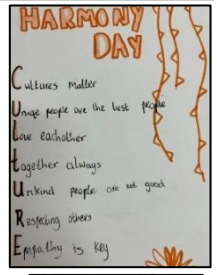 HARMONY
DAY
Cultures matter
Uniqe people are the best people
Love eachother
together always
Unkind people are not good
Respecting others
Empathy is key